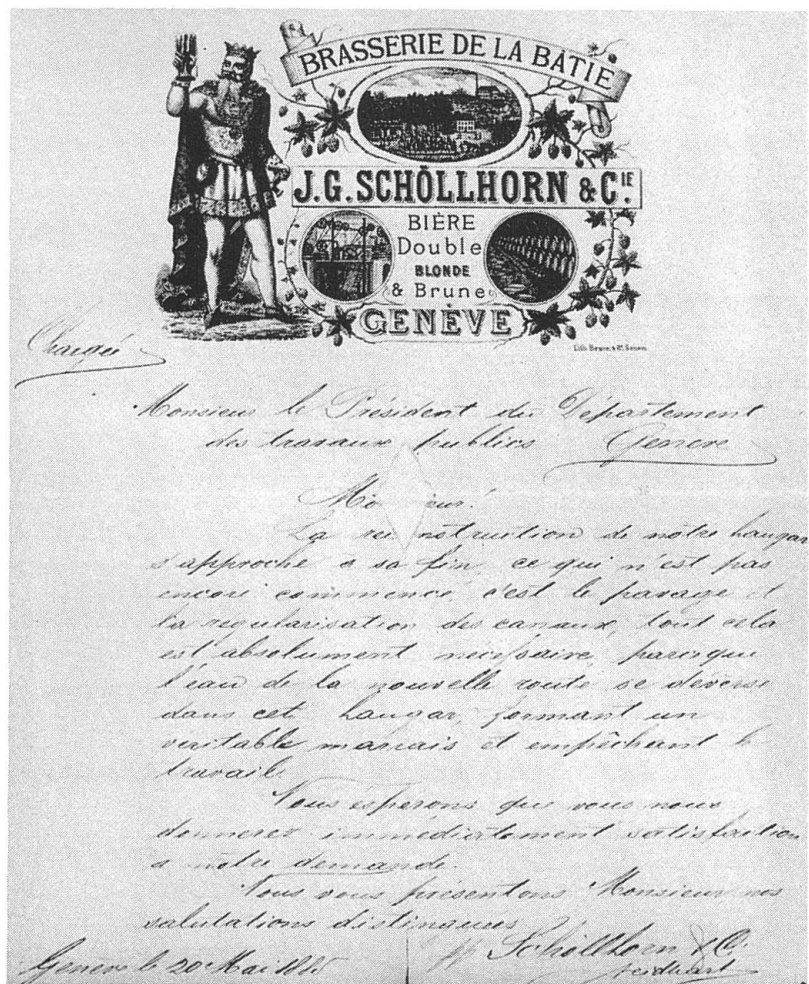 BRASSERIE DE LA BÂTIE
J.G. SCHÖLLHORN & CIE.
BIÈRE
Double
BLONDE
& Brune
GENÈVE
Chargée
Monsieur le Président du Département
des travaux publics Genève
Monsieur!
La reconstruction de notre hangar
s'approche à sa fin, ce qui n'est pas
encore commencé, c'est le pavage et
la regularisation des canaux, tout cela
est absolument necessaire, parceque
l'eau de la nouvelle route se deverse
dans cet hangar, formant un
veritable marais et empêchant le
travail.
Nous esperons que vous nous
donnerez immediatement satisfaction
a notre demande.
Nous vous présentons Monsieur nos
salutations distinguées
pp Schöllhorn & Co.
Geneve le 20 Mai 188